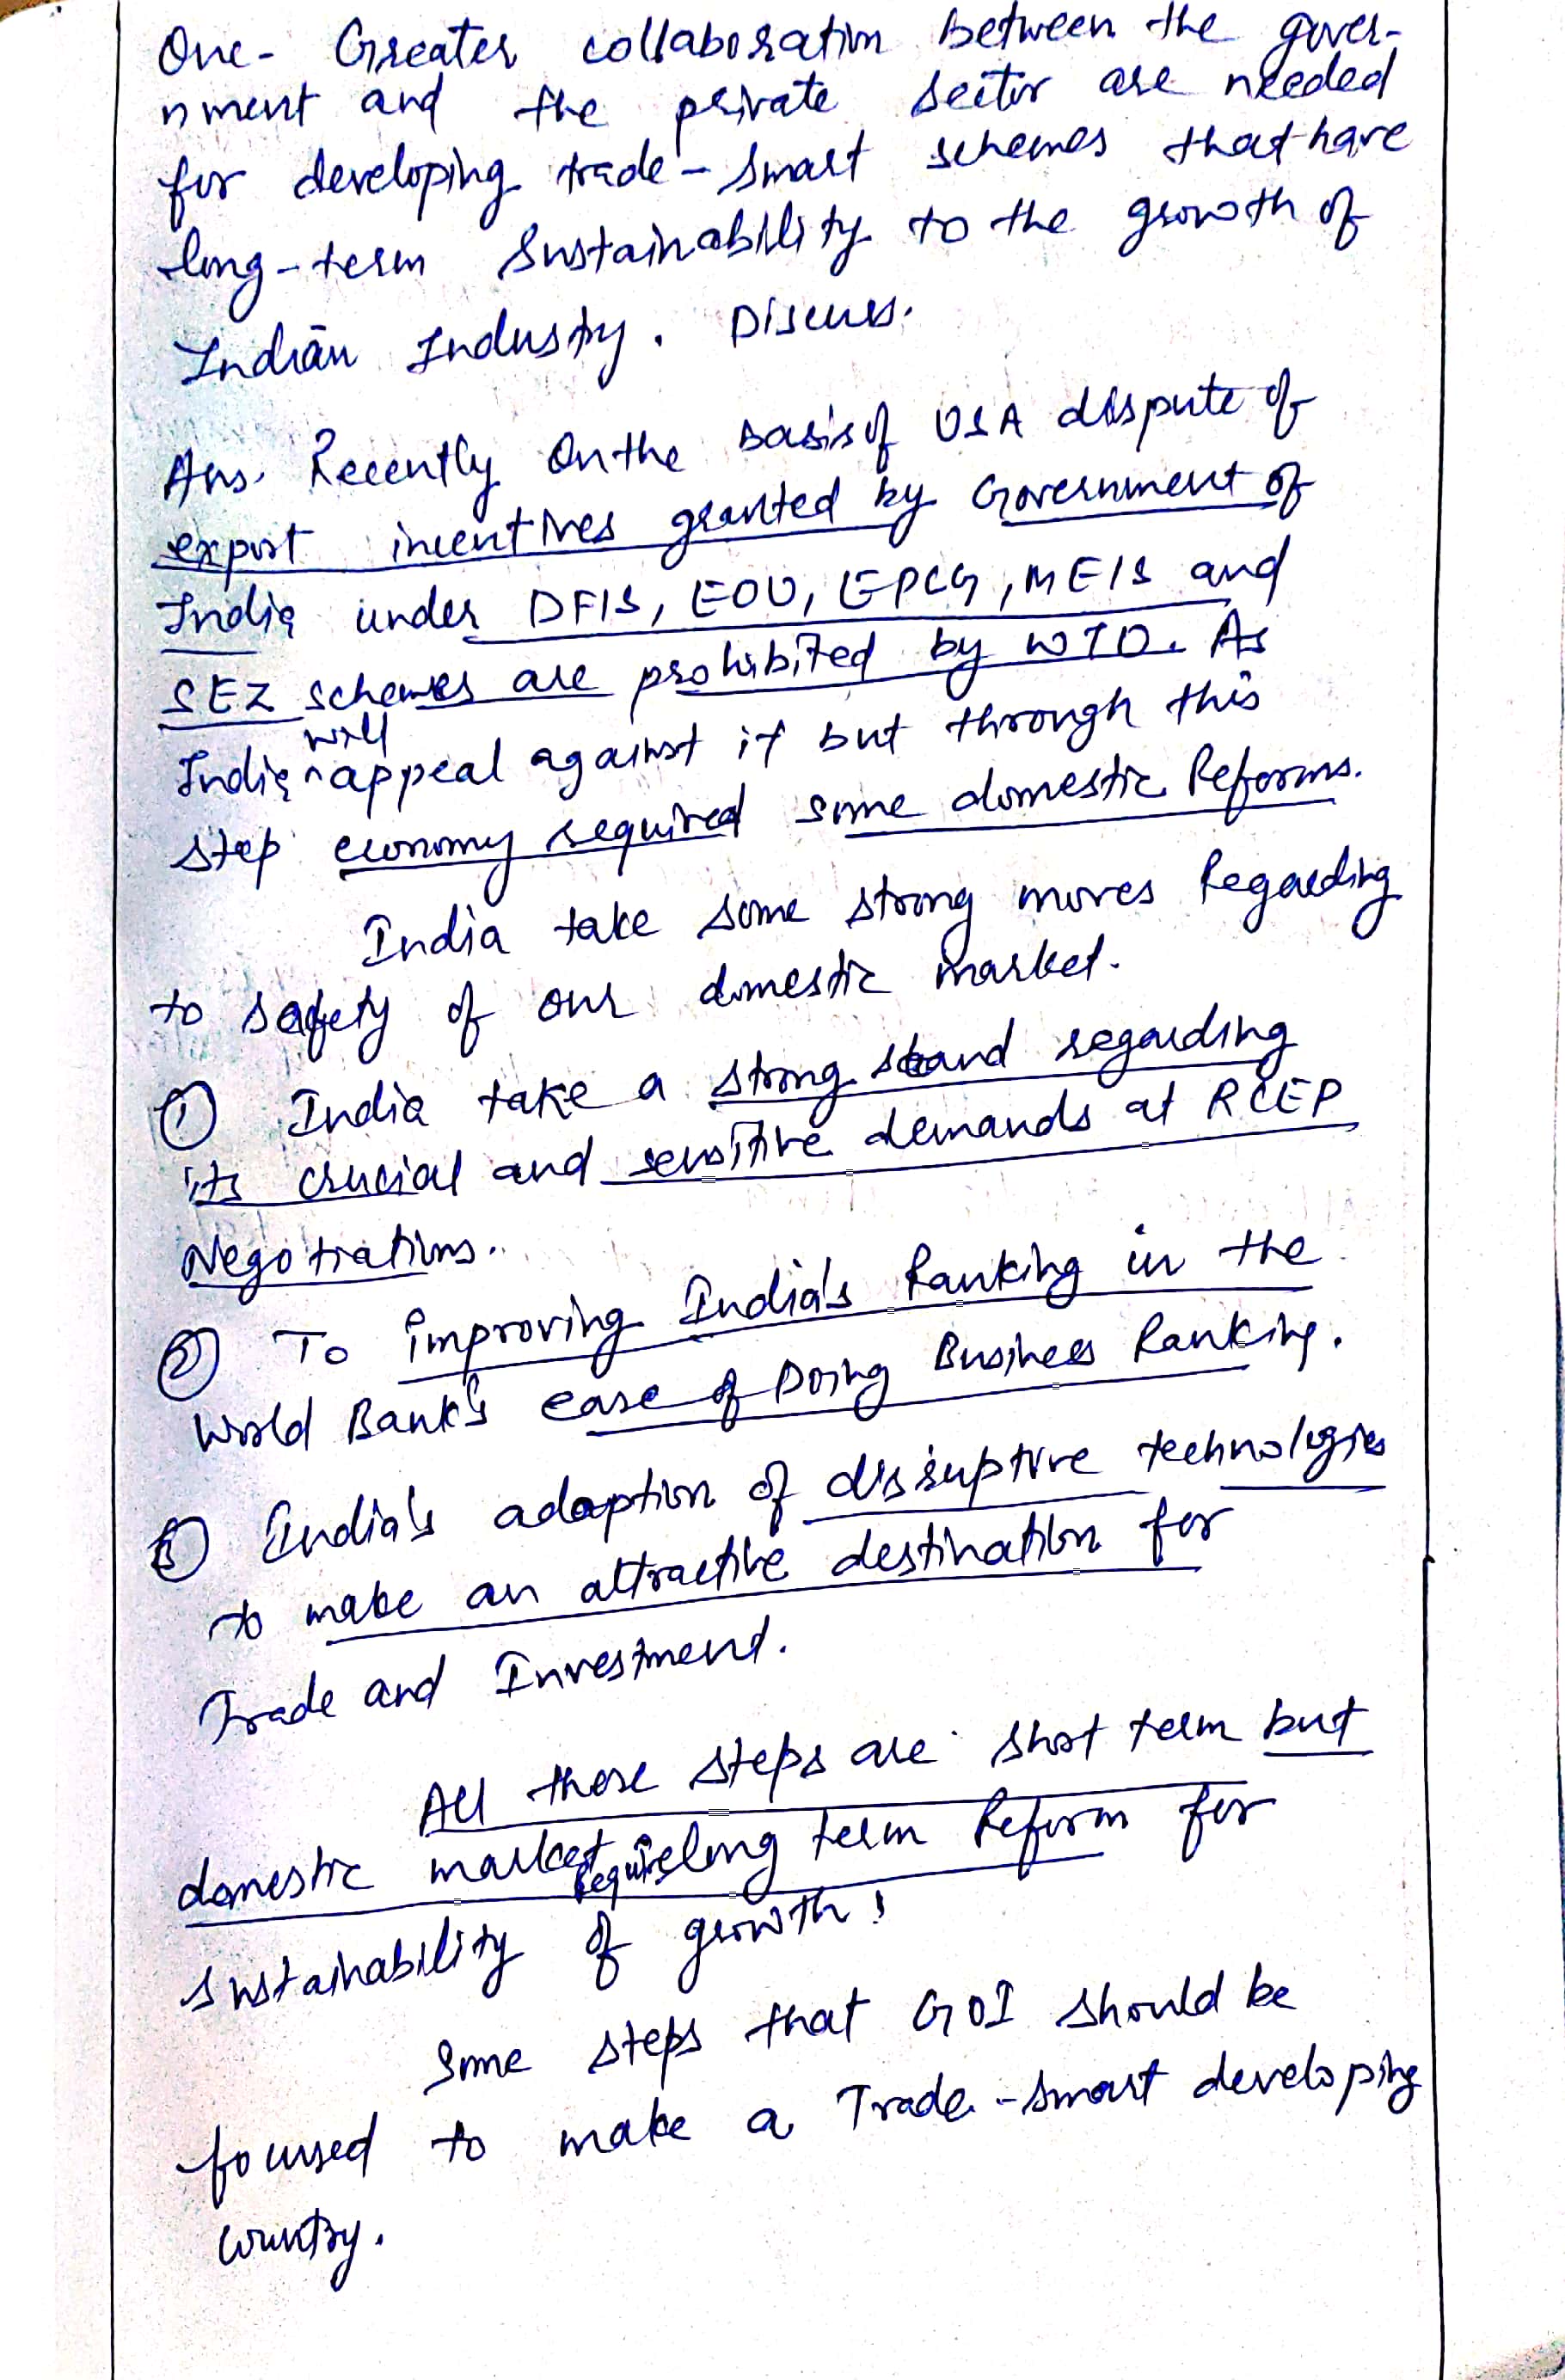 One- Greater collaboration between the gover-
nment and the private sector are needed
for developing trade-smart schemes that have
long-term sustainability to the growth of
Indian Industry. Discuss.
Ans. Recently On the basis of USA dispute of
export incentives granted by Government of
India under DFIS, EOU, EPCG, MEIS and
SEZ schemes are prohibited by WTO. As
India will appeal against it but through this
step economy required some domestic Reforms.
India take some strong moves Regarding
to safety of our domestic market.
① India take a strong stand regarding
its crucial and sensitive demands at RCEP
Negotiations.
② To improving India's Ranking in the
World Bank's ease of Doing Business Ranking.
③ India's adoption of disruptive technologies
to make an attractive destination for
Trade and Investment.
All these steps are short term but
domestic market require long term Reform for
sustainability of growth!
Some steps that GOI should be
focused to make a Trade-smart developing
country.